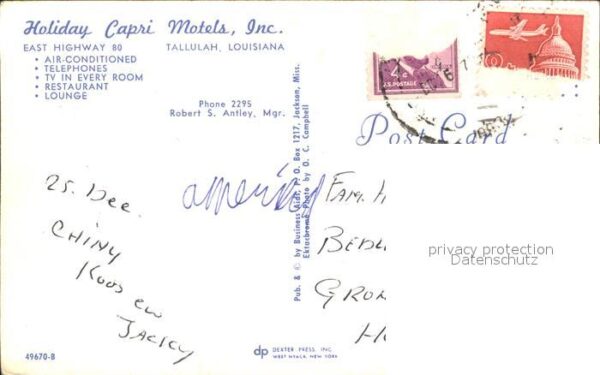 Holiday Capri Motels, Inc.
EAST HIGHWAY 80
TALLULAH, LOUISIANA
• AIR-CONDITIONED
• TELEPHONES
• TV IN EVERY ROOM
• RESTAURANT
LOUNGE
Phone 2295
Robert S. Antley, Mgr.
4¢
U.S. POSTAGE
Post Card
25 Dec.
CHINY
Koos en
JACKY
america
Pub. & © by Business Aids, P. O. Box 1217, Jackson, Miss.
Ektachrome Photo by O. C. Campbell
FAM. H
BEDU
GRON
privacy protection
Datenschutz
49670-B
dp DEXTER PRESS, INC.
WEST NYACK, NEW YORK